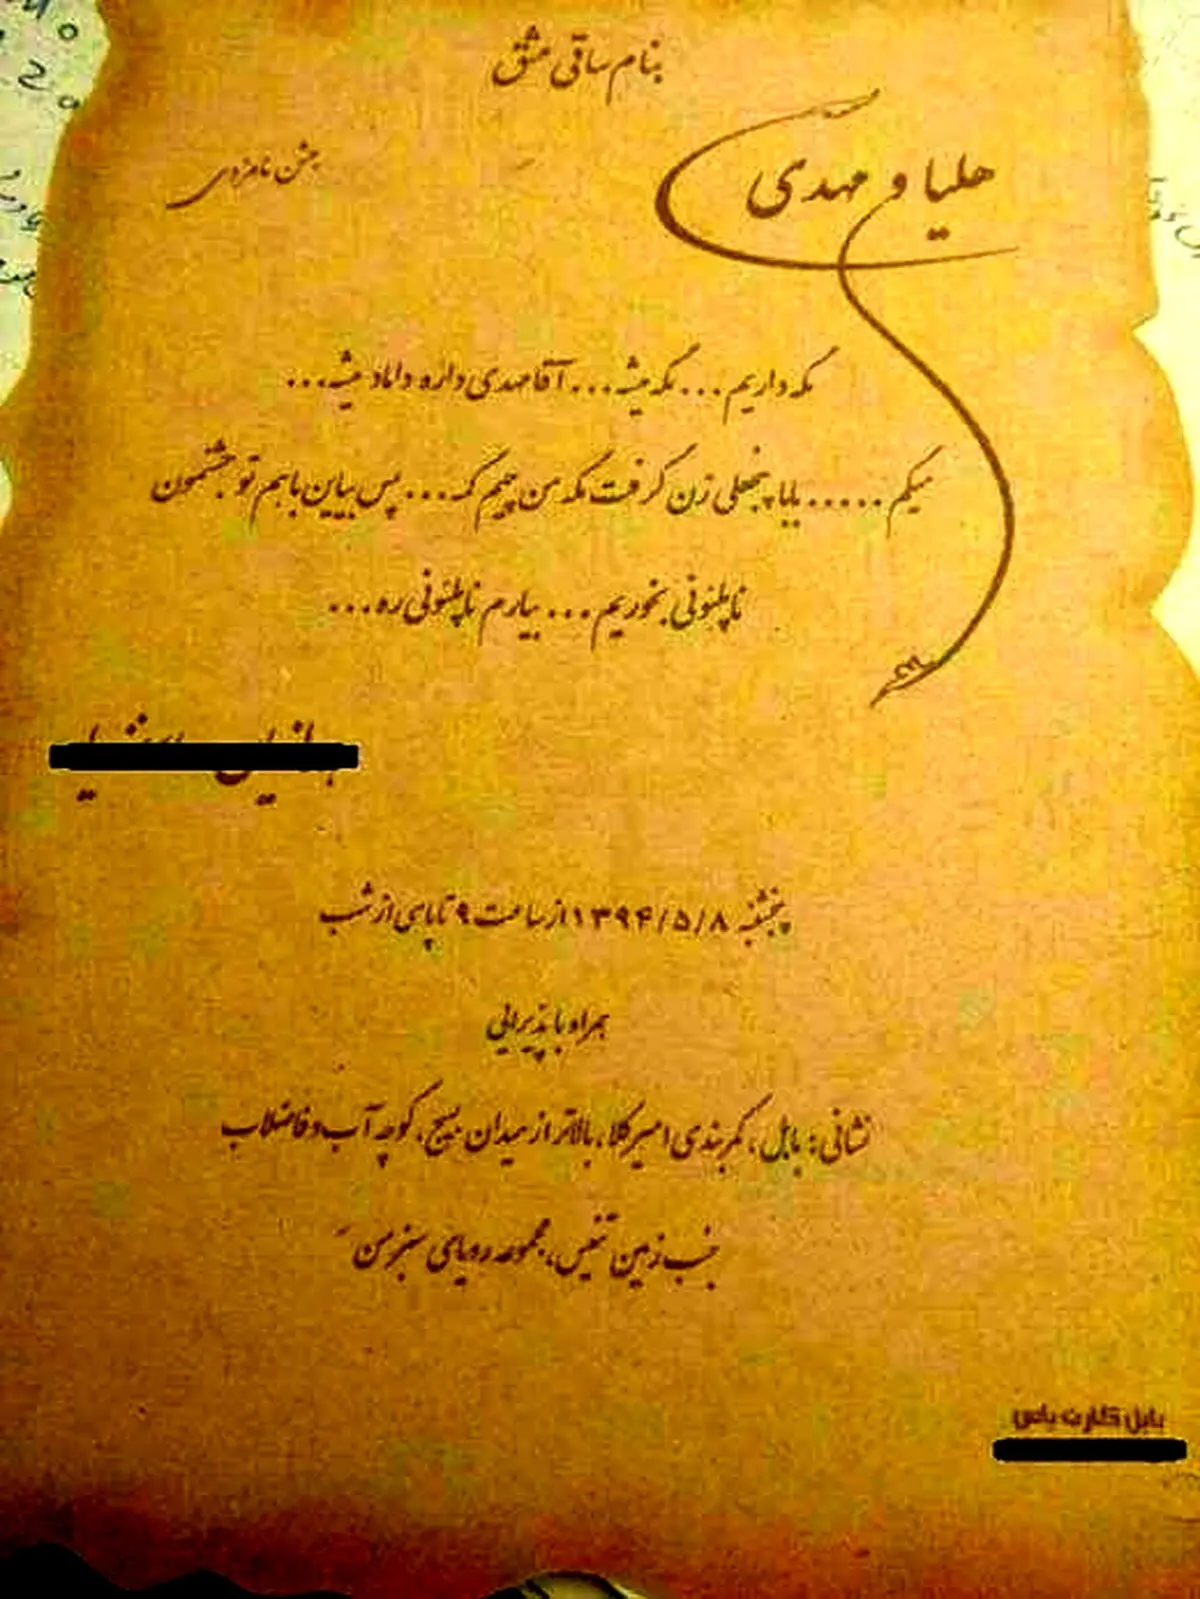 بنام ساقی عشق
هلیا و مهدی
جشن نامزدی
مگه داریم... مگه میشه... آقا مهدی داره داماد میشه...
میگم ..... بابا پنجعلی زن گرفت مگه من چیم کمه... پس بیاین باهم تو جشنمون
ناپلئونی بخوریم... بیارم ناپلئونی ره...
پنجشنبه ۱۳۹۴/۵/۸ از ساعت ۹ تا پاسی از شب
همراه با پذیرایی
نشانی: بابل، کمربندی امیرکلا، بالاتر از میدان بسیج، کوچه آب و فاضلاب
جنب زمین تنیس، مجموعه رویای سبز من
بابل کارت یاس